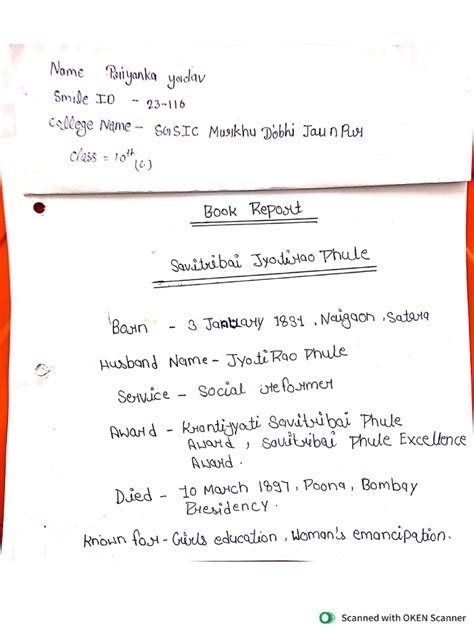 Name Priyanka yadav
Smile ID - 23-116
College Name - SGSIC Murkhu Dobhi JaunPur
Class = 10th (c)
Book Report
Savitribai Jyotirao Phule
Born - 3 January 1831, Naigaon, Satara
Husband Name - Jyoti Rao Phule
Service - Social reformer
Award - Krantijyoti Savitribai Phule
Award, Savitribai Phule Excellence
Award.
Died - 10 March 1897, Poona, Bombay
Presidency.
Known for - Girls education, Woman's emancipation.
Scanned with OKEN Scanner